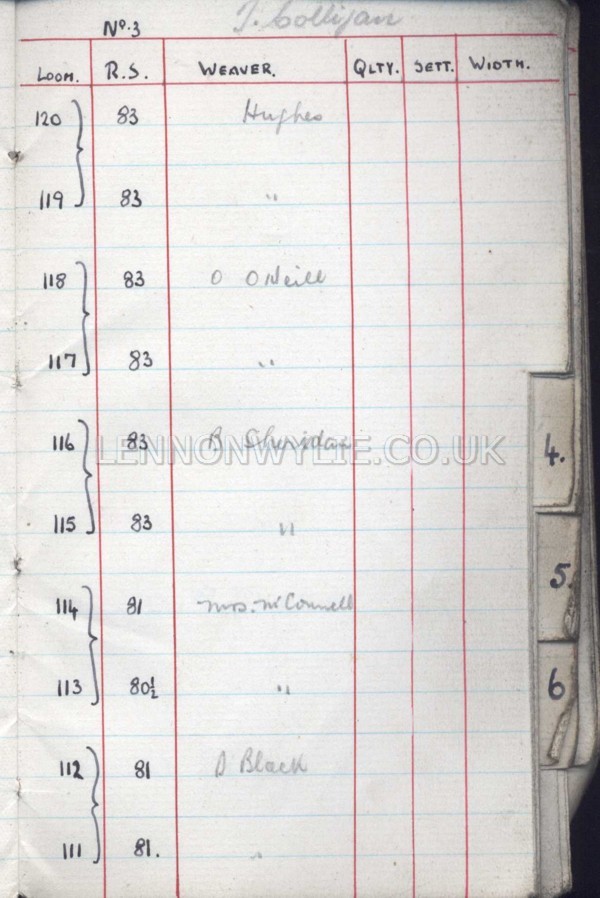 No. 3 J. Colligan
LOOM. R.S. WEAVER. QLTY. SETT. WIDTH.
120 83 Hughes
119 83 "
118 83 O O'Neill
117 83 "
116 83 B Sheridan
LENNONWYLIE.CO.UK
4.
115 83 "
5.
114 81 Mrs. McConnell
113 80½ "
6
112 81 D Black
111 81. "